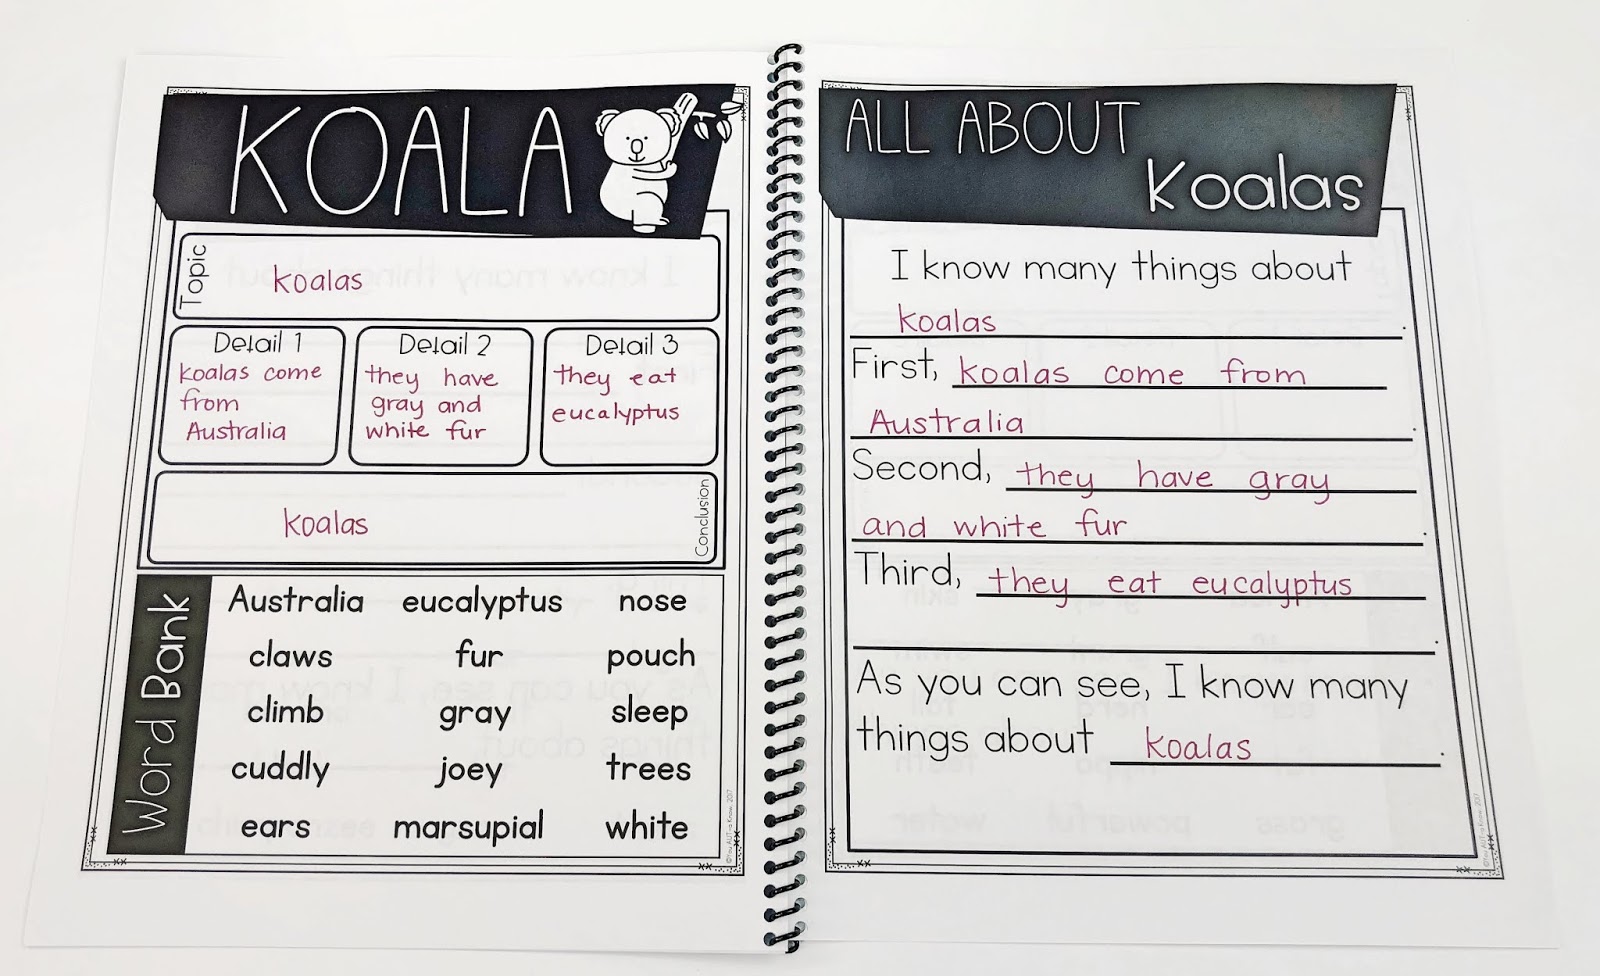 KOALA
Topic
koalas
Detail 1
koalas come
from
Australia
Detail 2
they have
gray and
white fur
Detail 3
they eat
eucalyptus
koalas
Conclusion
Word Bank
Australia eucalyptus nose
claws fur pouch
climb gray sleep
cuddly joey trees
ears marsupial white
©You AUT-a Know, 2017
ALL ABOUT
Koalas
I know many things about
koalas.
First, koalas come from
Australia.
Second, they have gray
and white fur.
Third, they eat eucalyptus
.
As you can see, I know many
things about koalas.
©You AUT-a Know, 2017